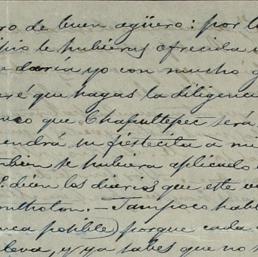 ro de buen agüero: por l
pio le hubieras ofrecida
e daría yo con mucho g
ré que hagas la diligenc
nco que Chapultepec será
endrá su fiestecita á m
bien te hubiera aplicado
E. dicen los diarios que este v
ontholon. Tampoco habl
nca posible) porque cada
leva, y ya sabes que no